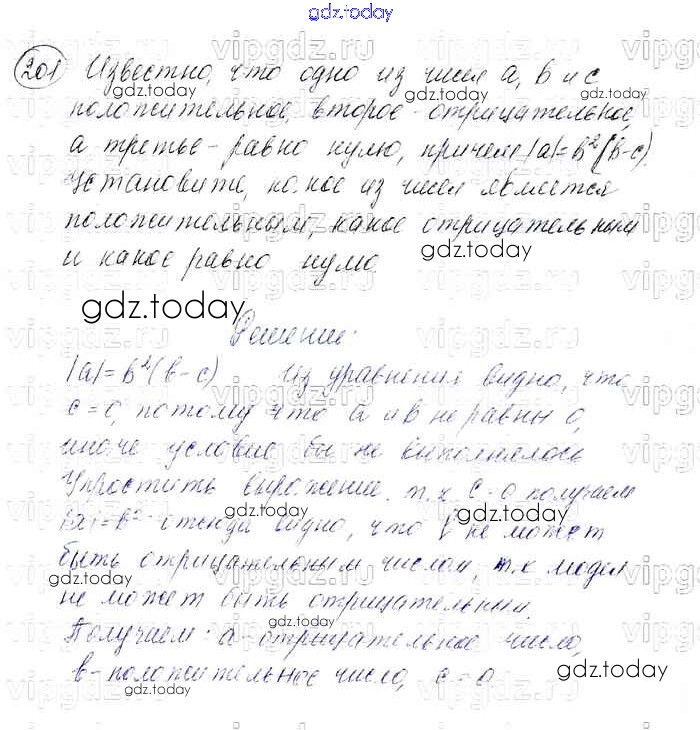 gdz.today
201 Известно, что одно из чисел a, b и c
положительное, второе - отрицательное,
а третье - равно нулю, причем |a|=b²(b-c).
Установите, какое из чисел является
положительным, какое отрицательным
и какое равно нулю.
gdz.today
Решение:
|a|=b²(b-c) Из уравнения видно, что
c=0, потому что a и b не равны 0,
иначе условие бы не выполнялось
Упростить выражение, т.к c=0 получаем
|a|=b³ отсюда видно, что b не может
быть отрицательным числом, т.к модул
не может быть отрицательным.
Получаем: a - отрицательное число,
b - положительное число, c = 0